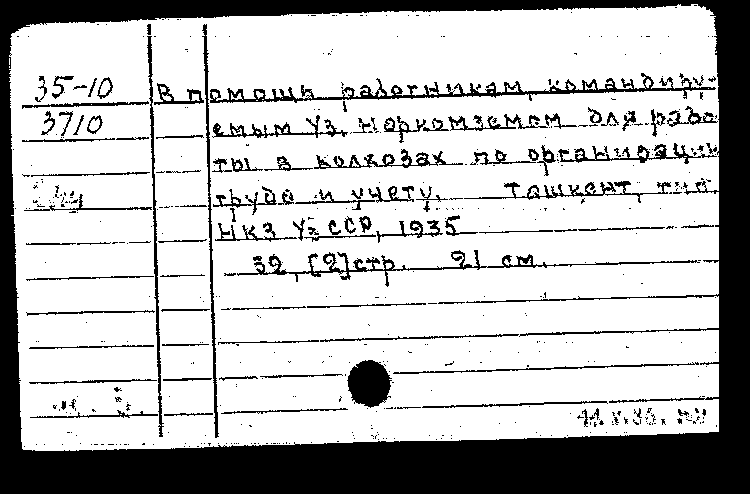 35-10
3710
В помощь работникам, командиру-
емым Уз. Наркомземом для рабо
ты в колхозах по организации
труда и учету. Ташкент, тип.
НКЗ УзССР, 1935
32, [2] стр. 21 см.